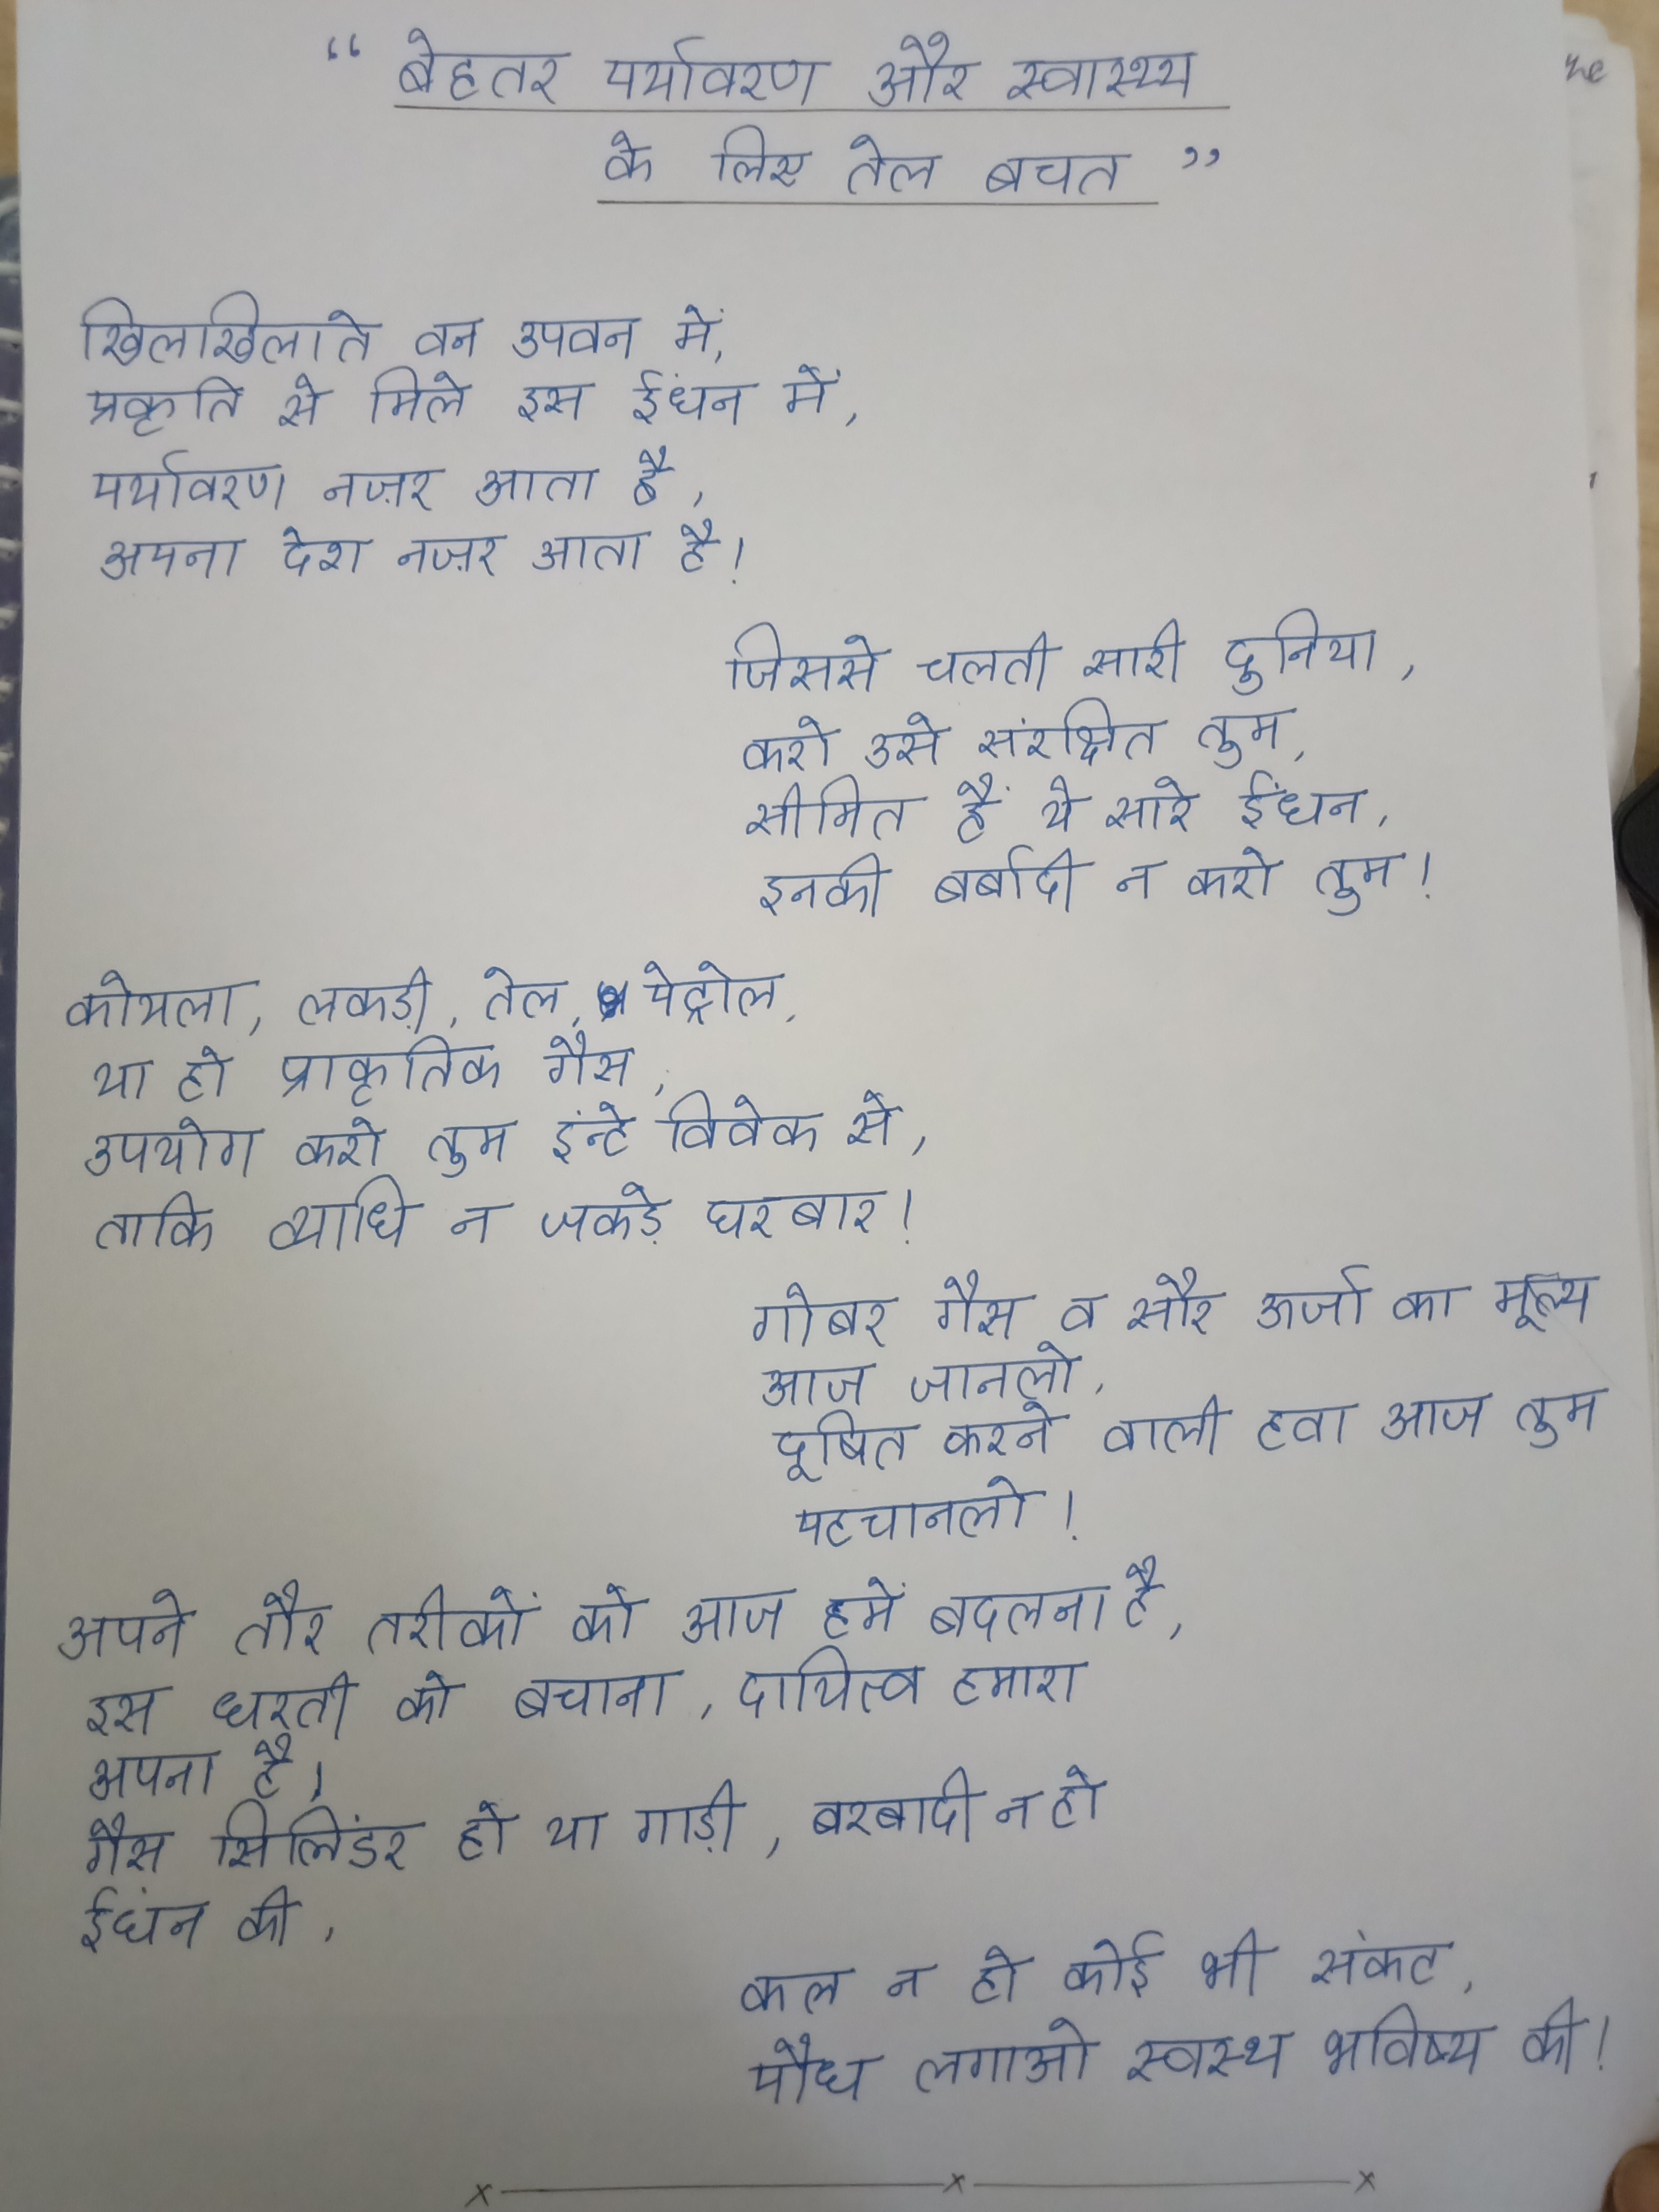 “ बेहतर पर्यावरण और स्वास्थ्य
के लिए तेल बचत ”
खिलखिलाते वन उपवन में,
प्रकृति से मिले इस ईंधन में,
पर्यावरण नज़र आता है,
अपना देश नज़र आता है!
जिससे चलती सारी दुनिया,
करो उसे संरक्षित तुम,
सीमित हैं ये सारे ईंधन,
इनकी बर्बादी न करो तुम!
कोयला, लकड़ी, तेल, पेट्रोल,
या हो प्राकृतिक गैस,
उपयोग करो तुम इंन्हे विवेक से,
ताकि व्याधि न जकड़े घरबार!
गोबर गैस व सौर ऊर्जा का मूल्य
आज जानलो,
दूषित करने वाली हवा आज तुम
पहचानलो!
अपने तौर तरीकों को आज हमें बदलना है,
इस धरती को बचाना, दायित्व हमारा
अपना है!
गैस सिलिंडर हो या गाड़ी, बरबादी न हो
ईंधन की,
कल न हो कोई भी संकट,
पौध लगाओ स्वस्थ भविष्य की!